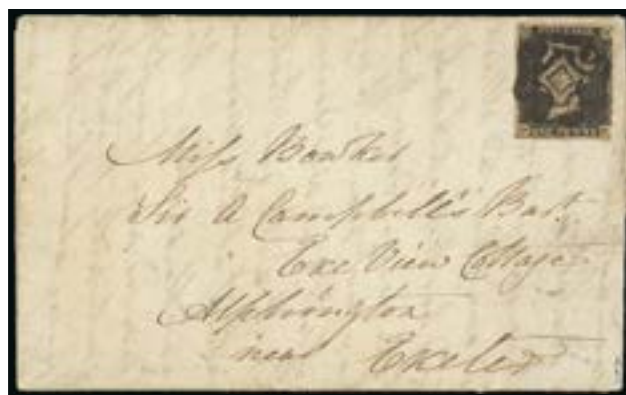 ONE PENNY
Miss Bowker
Sir A Campbell's Bart.
Exe View Cottage
Alphington
near Exeter